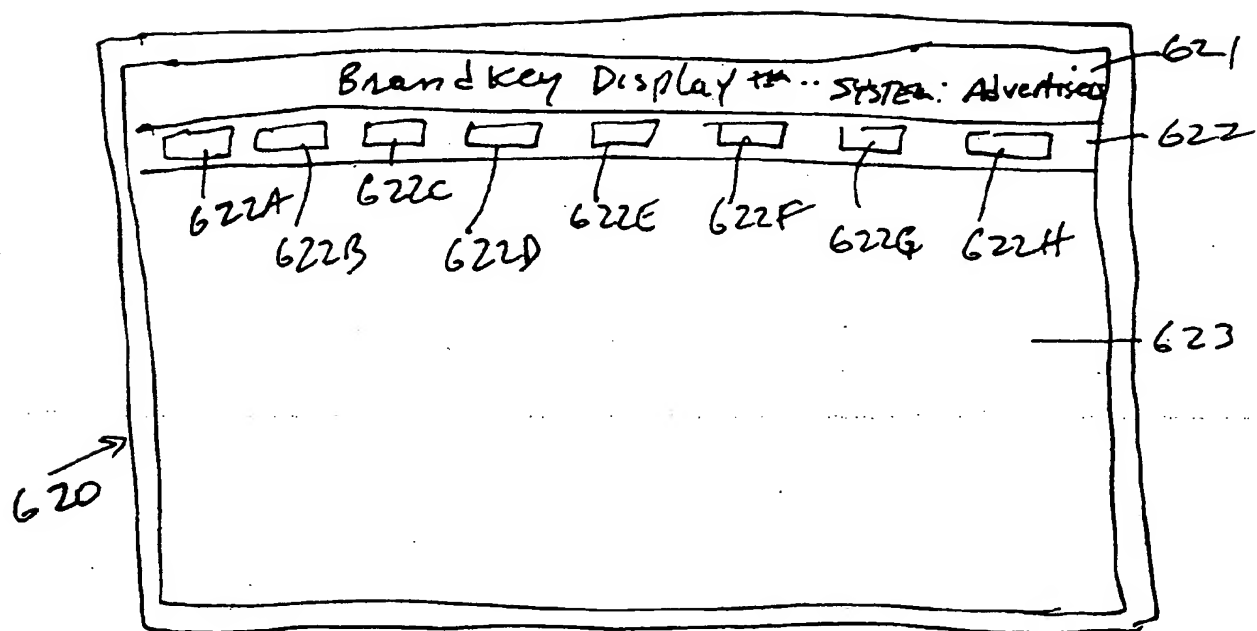 BrandKey Display ™ .. SYSTEM: Advertisers
621
622
622A 622B 622C 622D 622E 622F 622G 622H
623
620